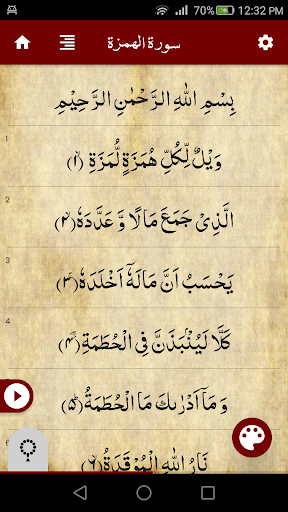 70% 12:32 PM
سورة الهمزة
بِسْمِ اللّٰهِ الرَّحْمٰنِ الرَّحِيْمِ
1
وَيْلٌ لِّكُلِّ هُمَزَةٍ لُّمَزَةِ ﴿۱﴾
2
الَّذِىْ جَمَعَ مَالًا وَّ عَدَّدَهٗ ﴿۲﴾
3
يَحْسَبُ اَنَّ مَالَهٗۤ اَخْلَدَهٗ ﴿۳﴾
4
كَلَّا لَيُنْۢبَذَنَّ فِى الْحُطَمَةِ ﴿۴﴾
وَ مَاۤ اَدْرٰىكَ مَا الْحُطَمَةُ ﴿۵﴾
نَارُ اللّٰهِ الْمُوْقَدَةُ ﴿۶﴾